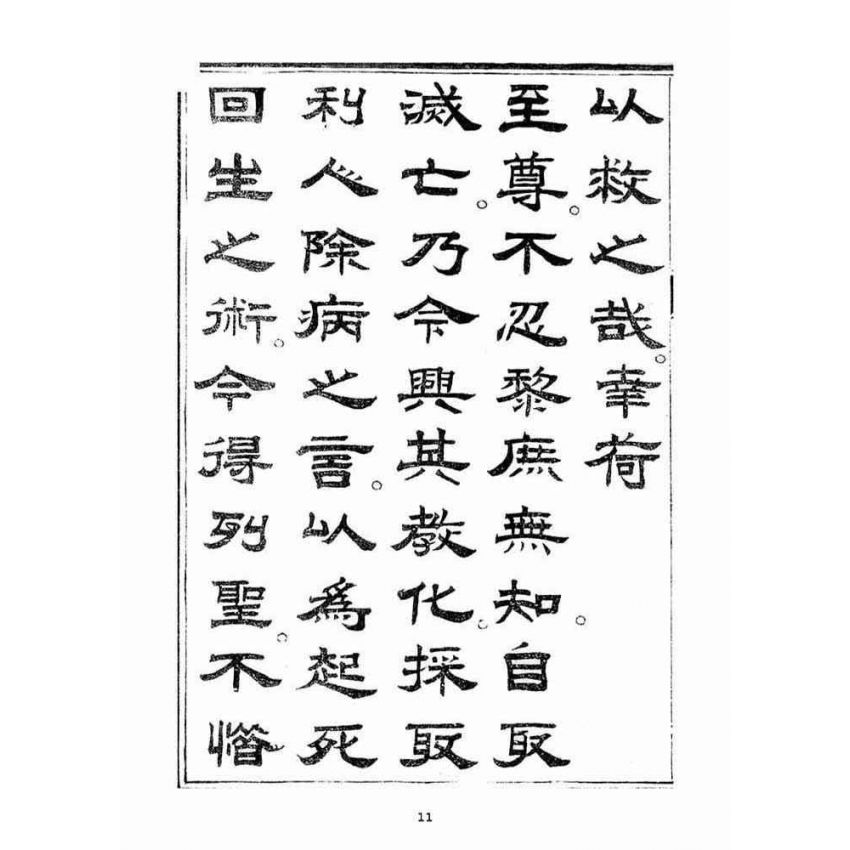 以救之哉。幸荷
至尊。不忍黎庶無知。自取
滅亡。乃今興其教化。採取
利人除病之言。以為起死
回生之術。今得列聖。不惜
11